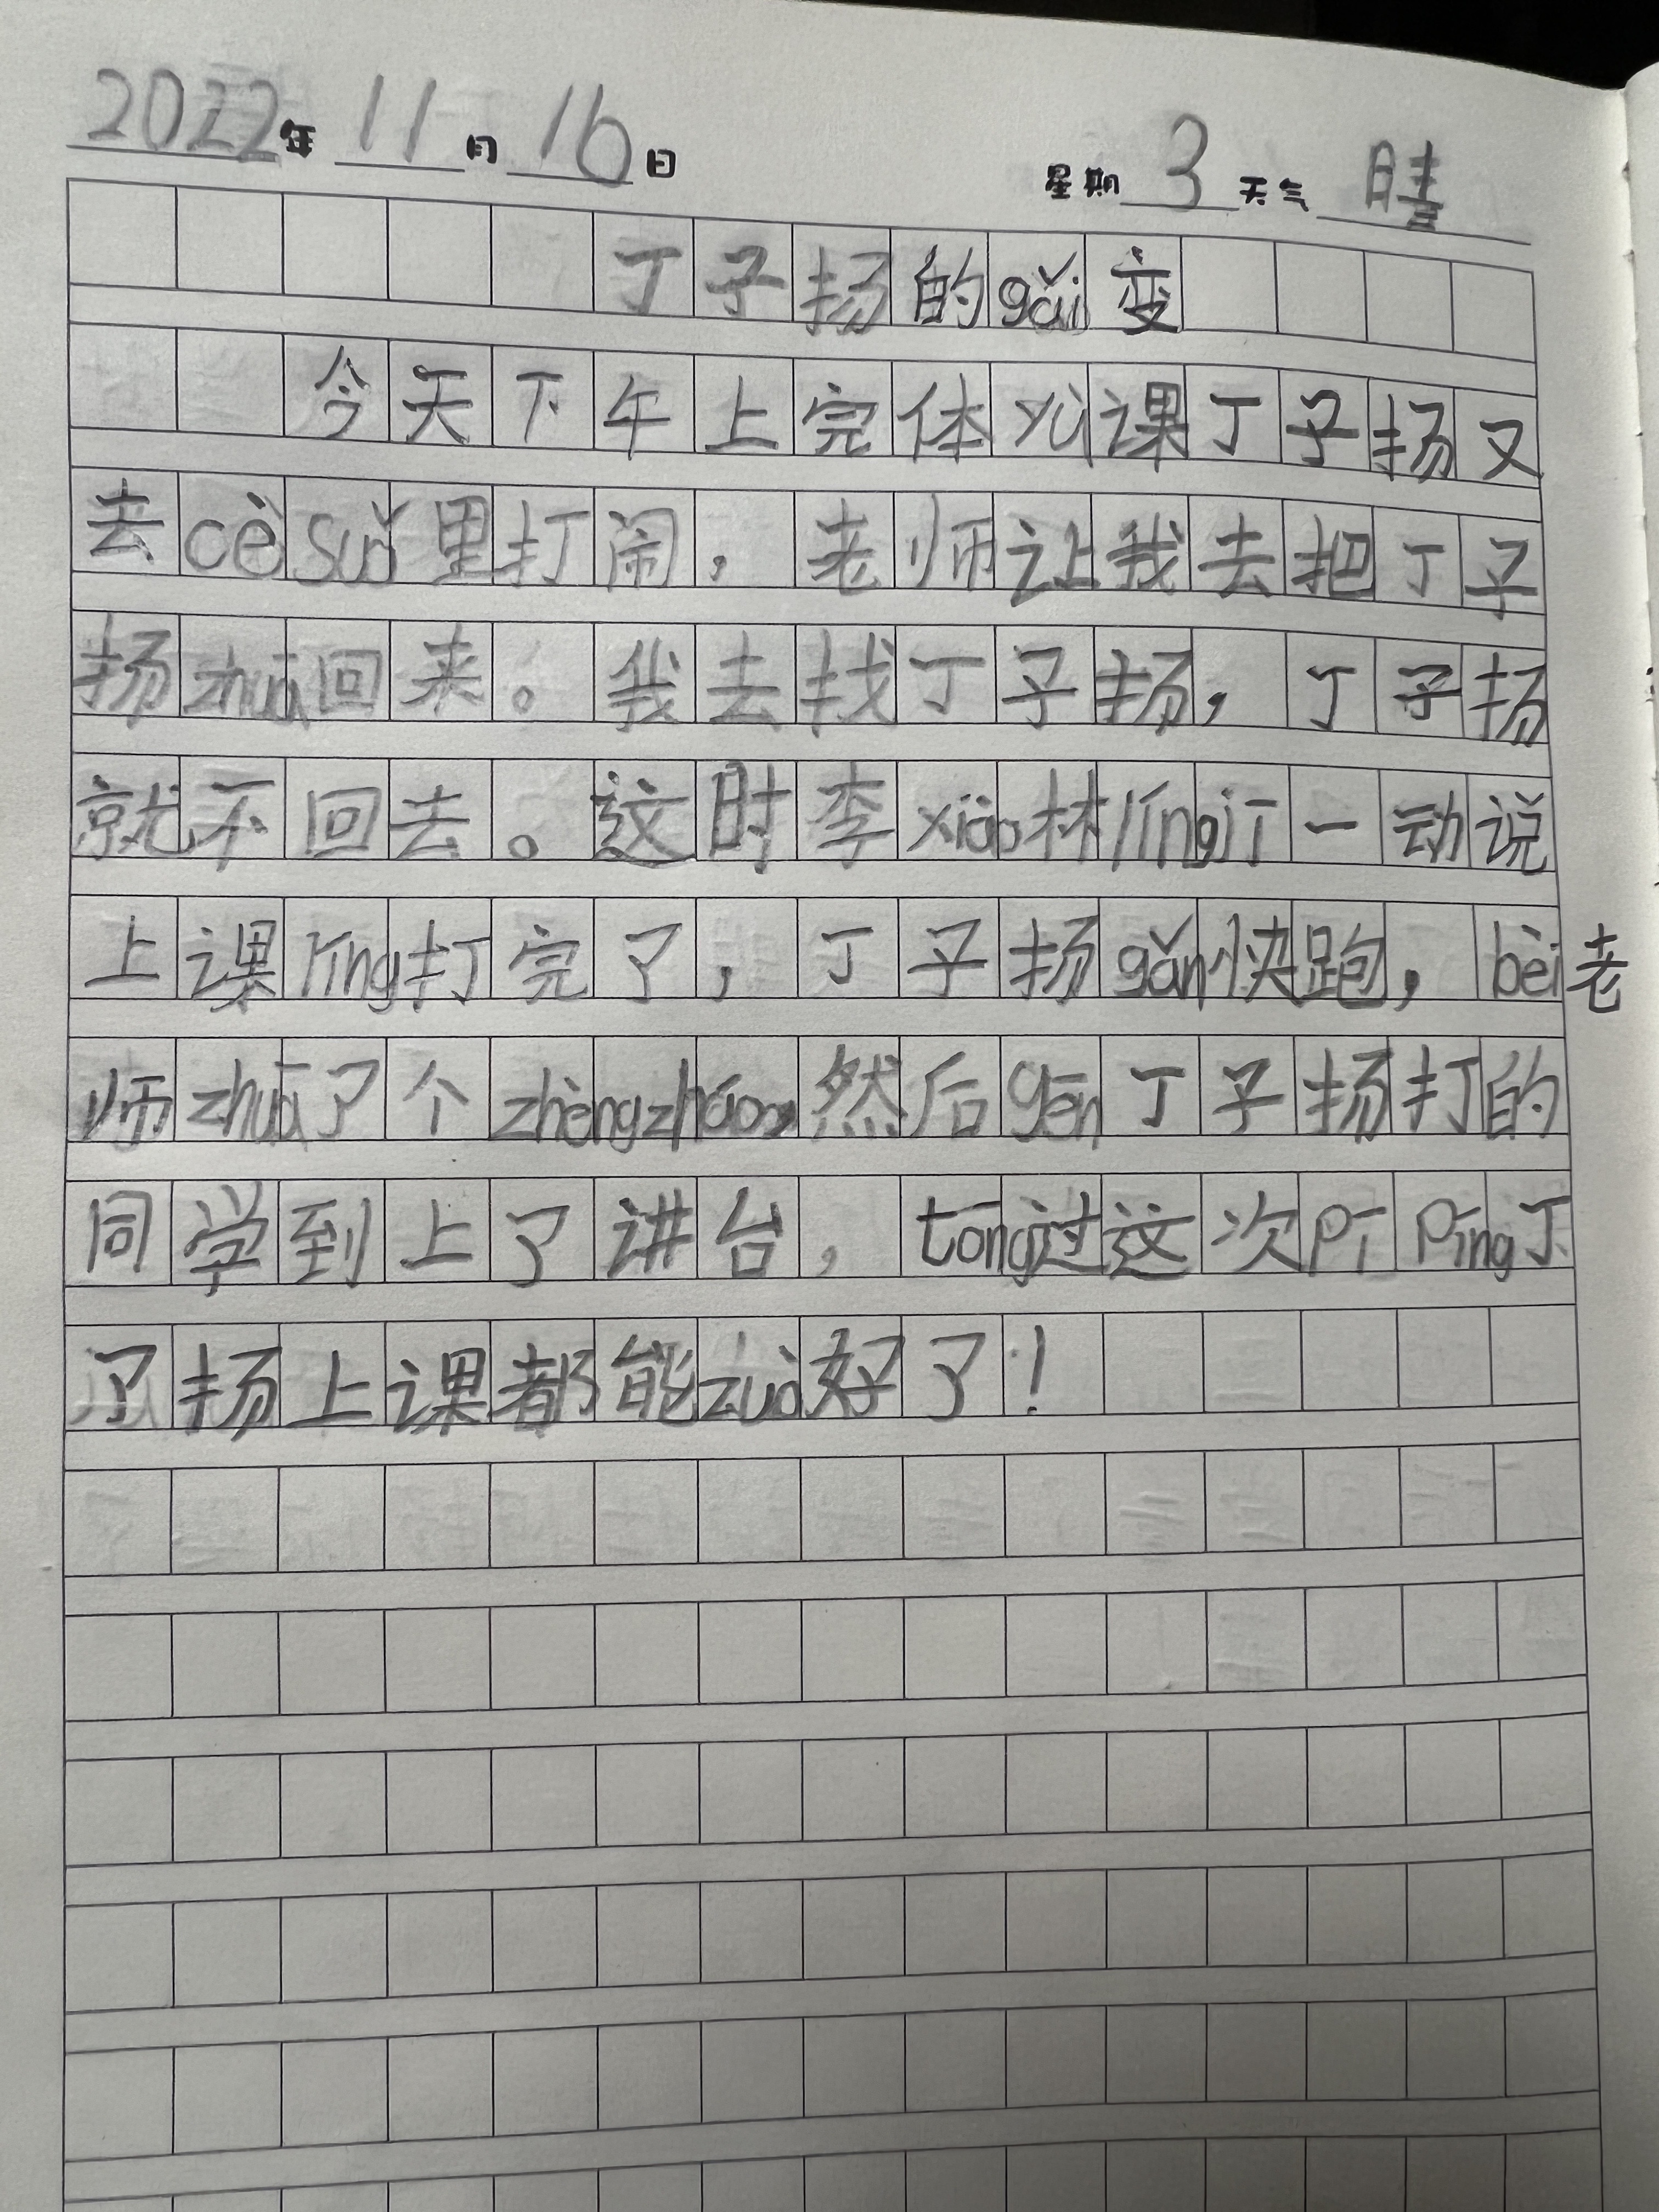 2022年 11月 16日 星期 3 天气 晴
丁子扬的gǎi变
今天下午上完体yù课丁子扬又
去cèsuǒ里打闹，老师让我去把丁子
扬zhuā回来。我去找丁子扬，丁子扬
就不回去。这时李xiǎo林língjī一动说
上课líng打完了，丁子扬gǎn快跑，bèi老
师zhuā了个zhèngzháo，然后gēn丁子扬打的
同学到上了讲台，tōng过这次pīPíng丁
了扬上课都能zuò好了！